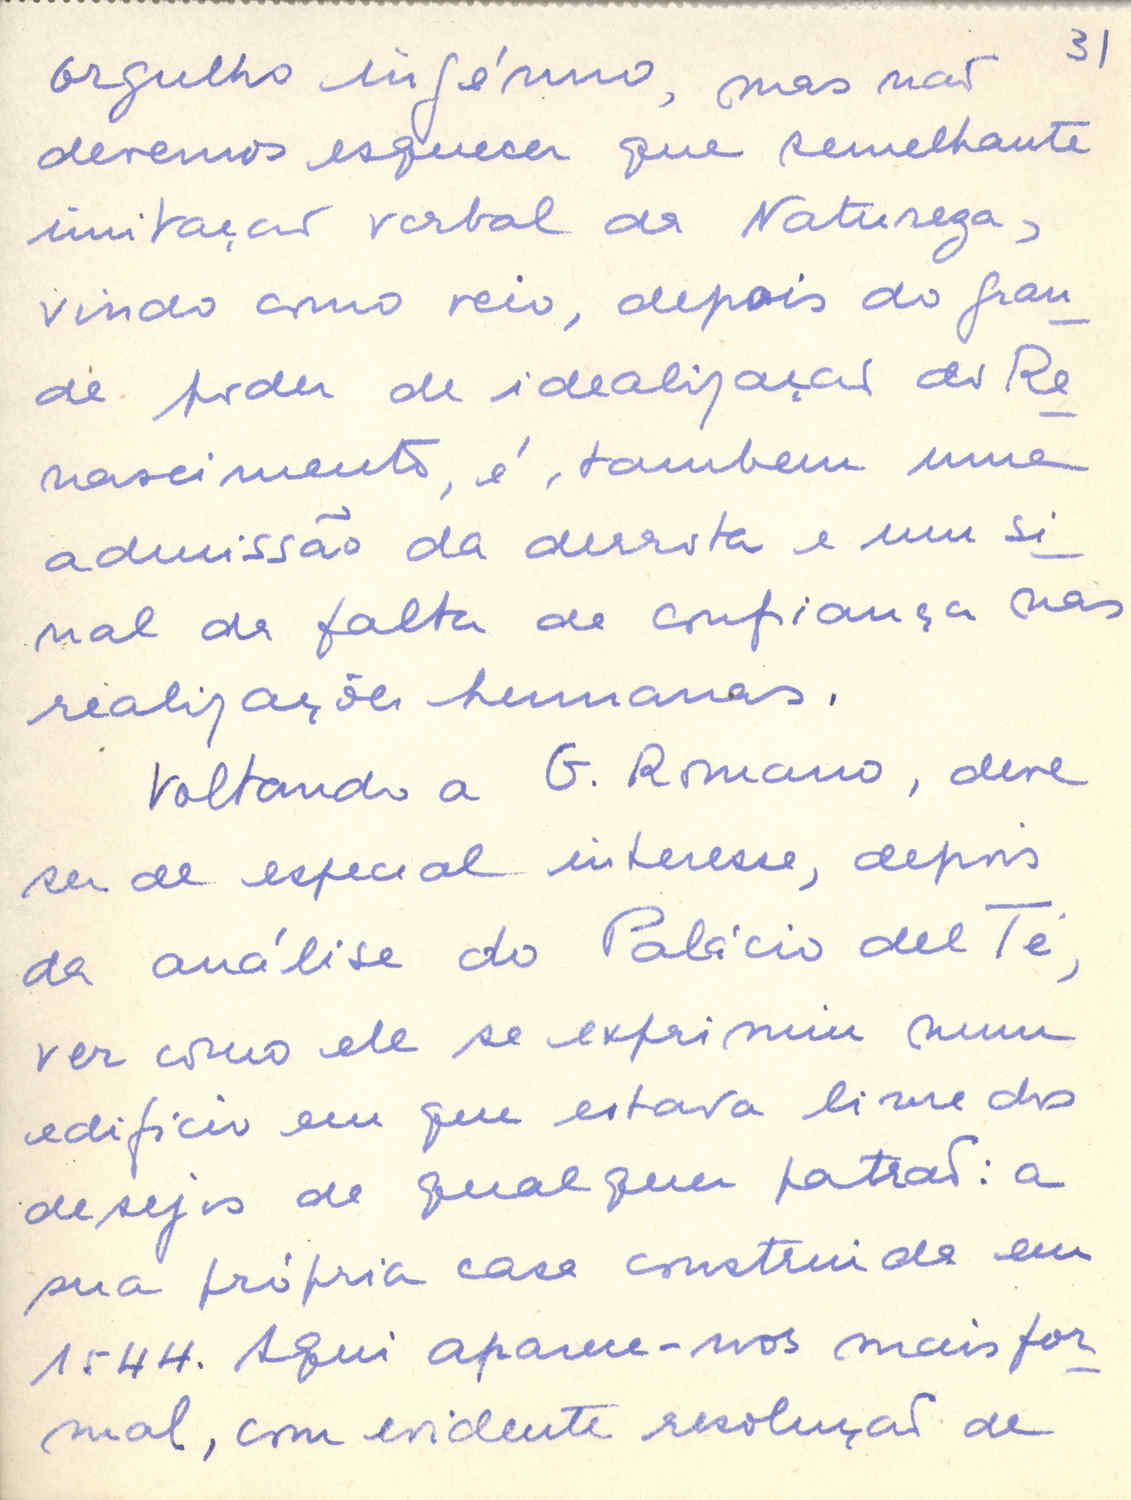 31
orgulho ingénuo, mas não
devemos esquecer que semelhante
imitação verbal da Natureza,
vindo como veio, depois do gran
de poder de idealização do Re
nascimento, é, tambem uma
admissão da derrota e um si
nal da falta de confiança nas
realizações humanas.
Voltando a G. Romano, deve
ser de especial interesse, depois
da análise do Palácio del Té,
ver como ele se exprimiu num
edifício em que estava livre dos
desejos de qualquer patrão: a
sua própria casa construida em
1544. Aqui aparece-nos mais for
mal, com evidente resolução de